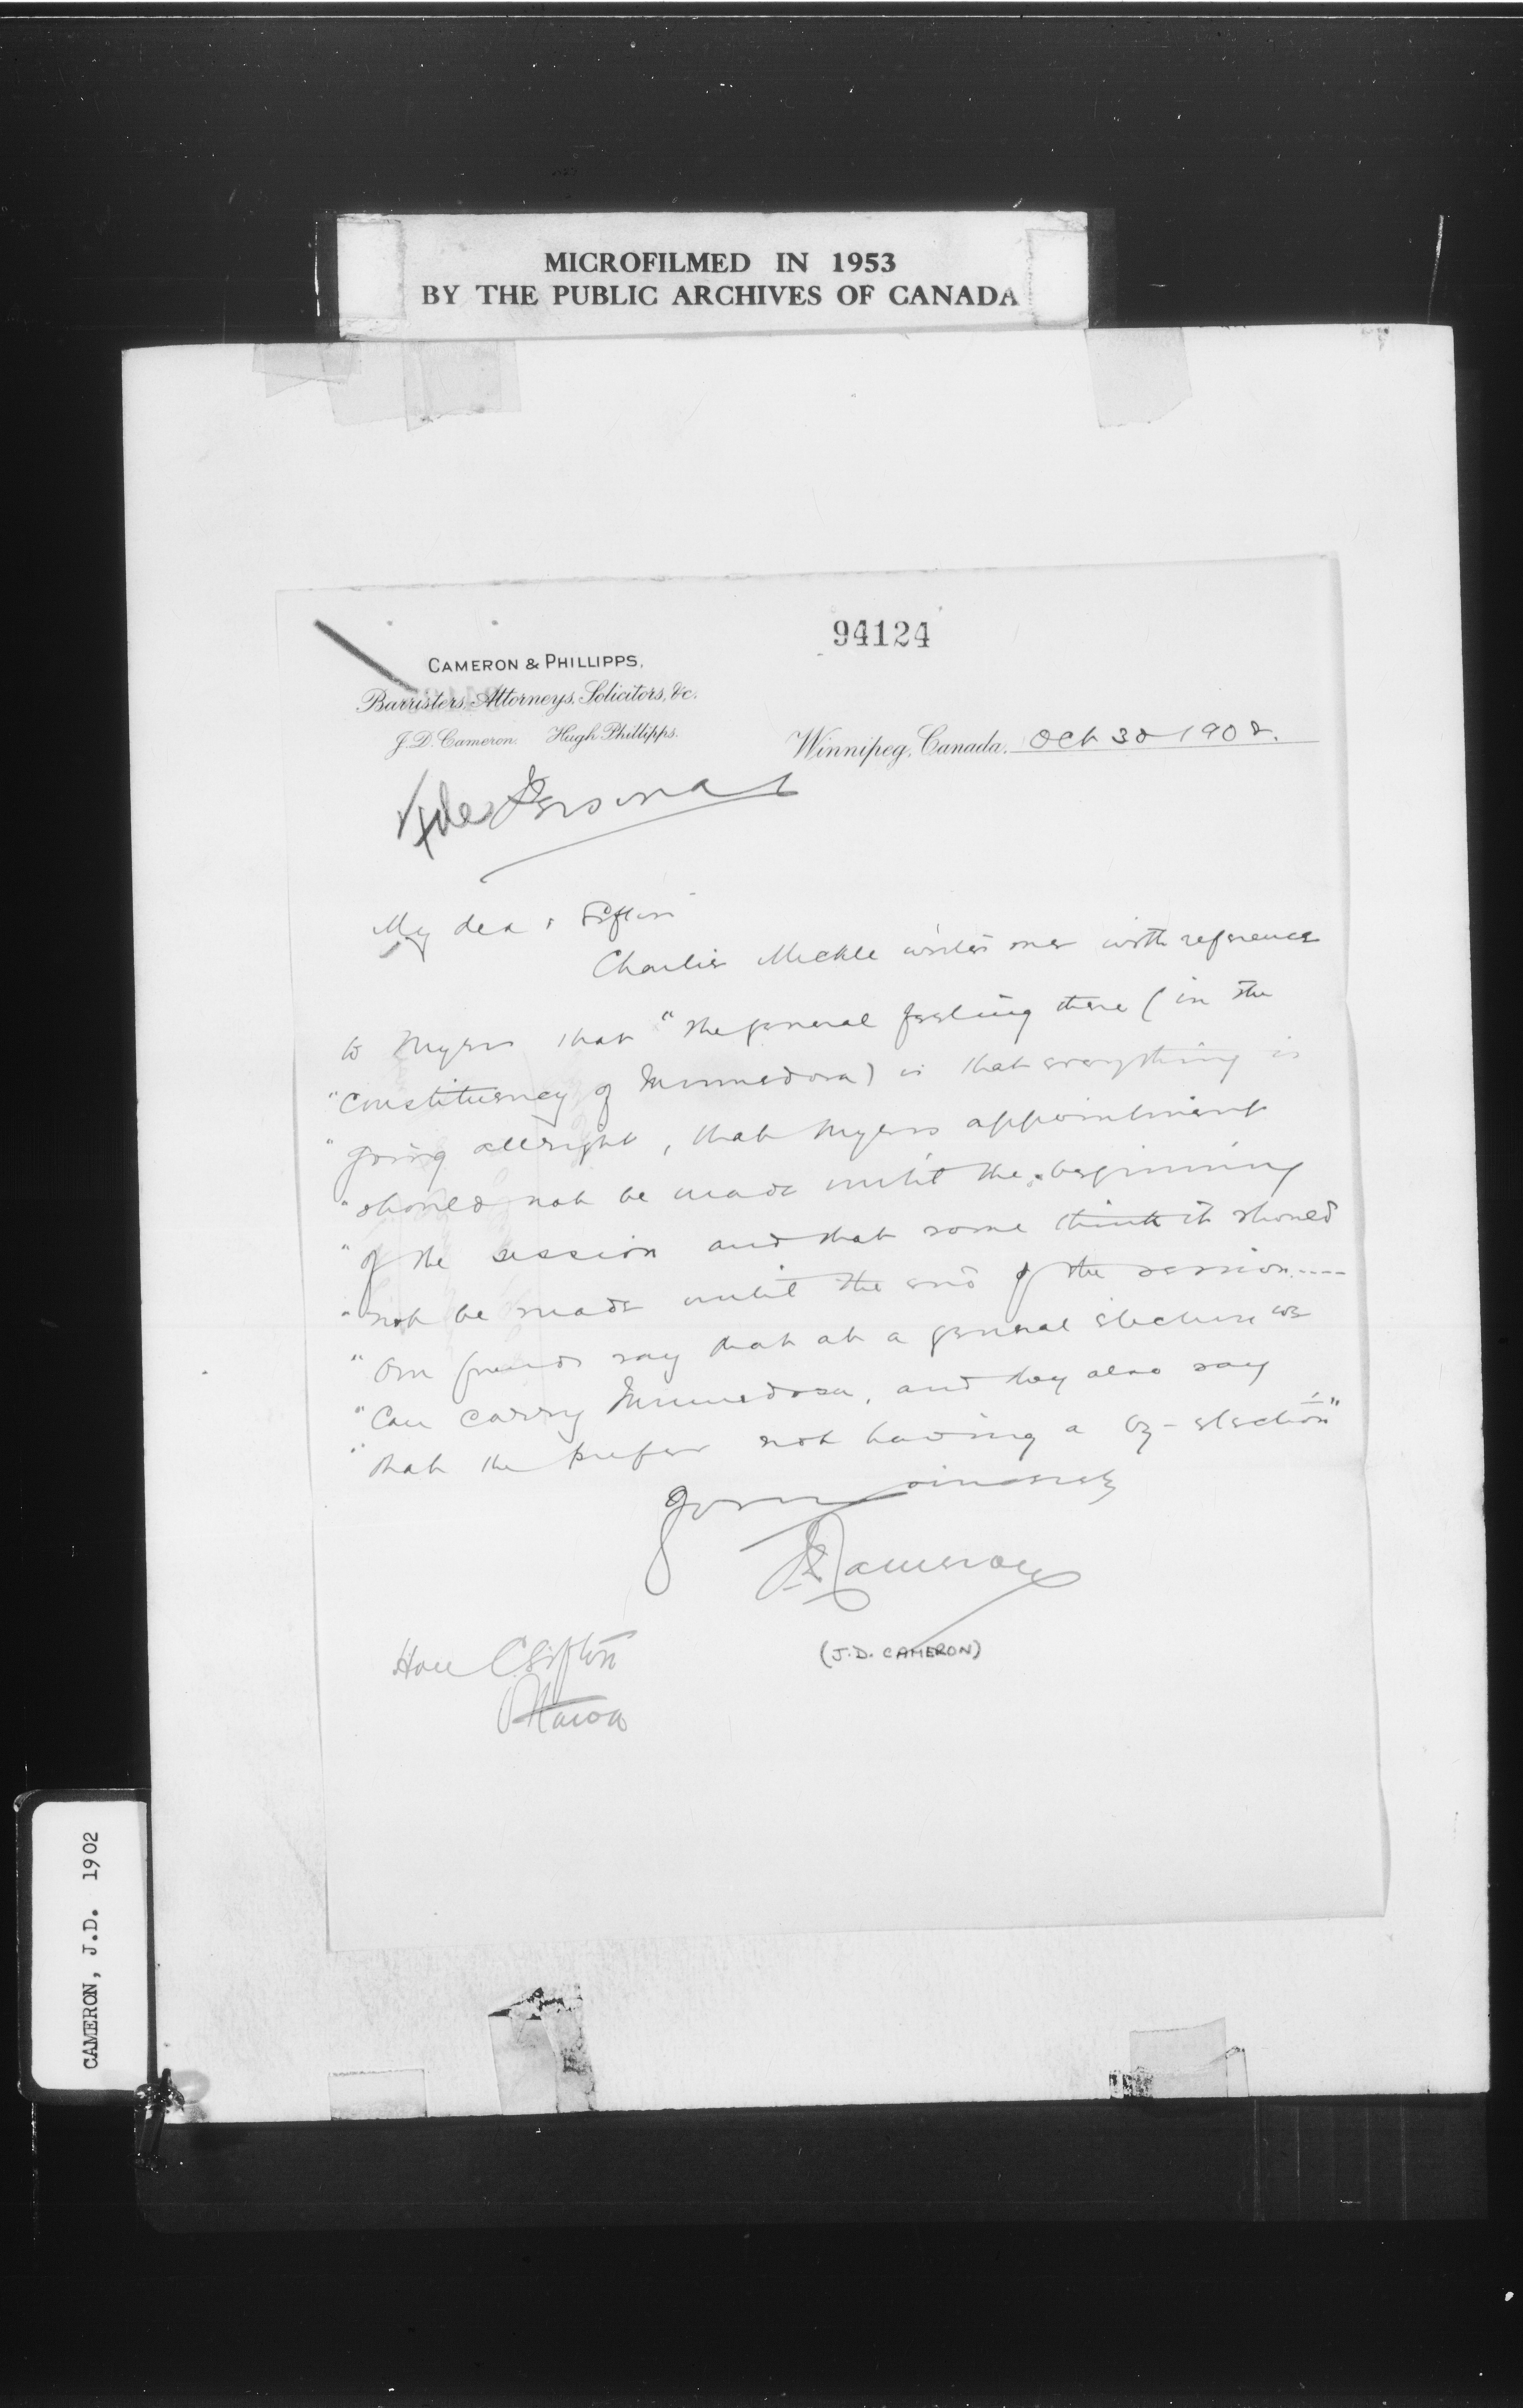 MICROFILMED IN 1953
BY THE PUBLIC ARCHIVES OF CANADA
94124
CAMERON & PHILLIPPS,
Barristers, Attorneys, Solicitors, &c.
J. D. Cameron. Hugh Phillipps.
Winnipeg, Canada, Oct 30 1902.
File Personal
My dear Sifton
Charlie Mickle writes me with reference
to Myers that "the general feeling there (in the
"constituency of Minnedosa) is that everything is
"going allright, that Myers appointment
"should not be made until the beginning
"of the session and that some think it should
"not be made until the end of the session.----
"Our friends say that at a general election we
"can carry Minnedosa, and they also say
"that the prefer not having a by-election"
Yours sincerely
JDCameron
(J.D. CAMERON)
Hon C Sifton
Ottawa
CAMERON, J.D. 1902